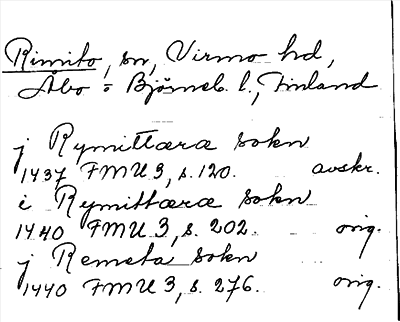 Rimito, sn, Virmo hd,
Åbo = Björneb. l., Finland
j Rymittæræ sokn
1437 FMU 3, s. 120. avskr.
i Rymittæræ sokn
1440 FMU 3, s. 202. orig.
j Remeta sokn
1440 FMU 3, s. 276. orig.